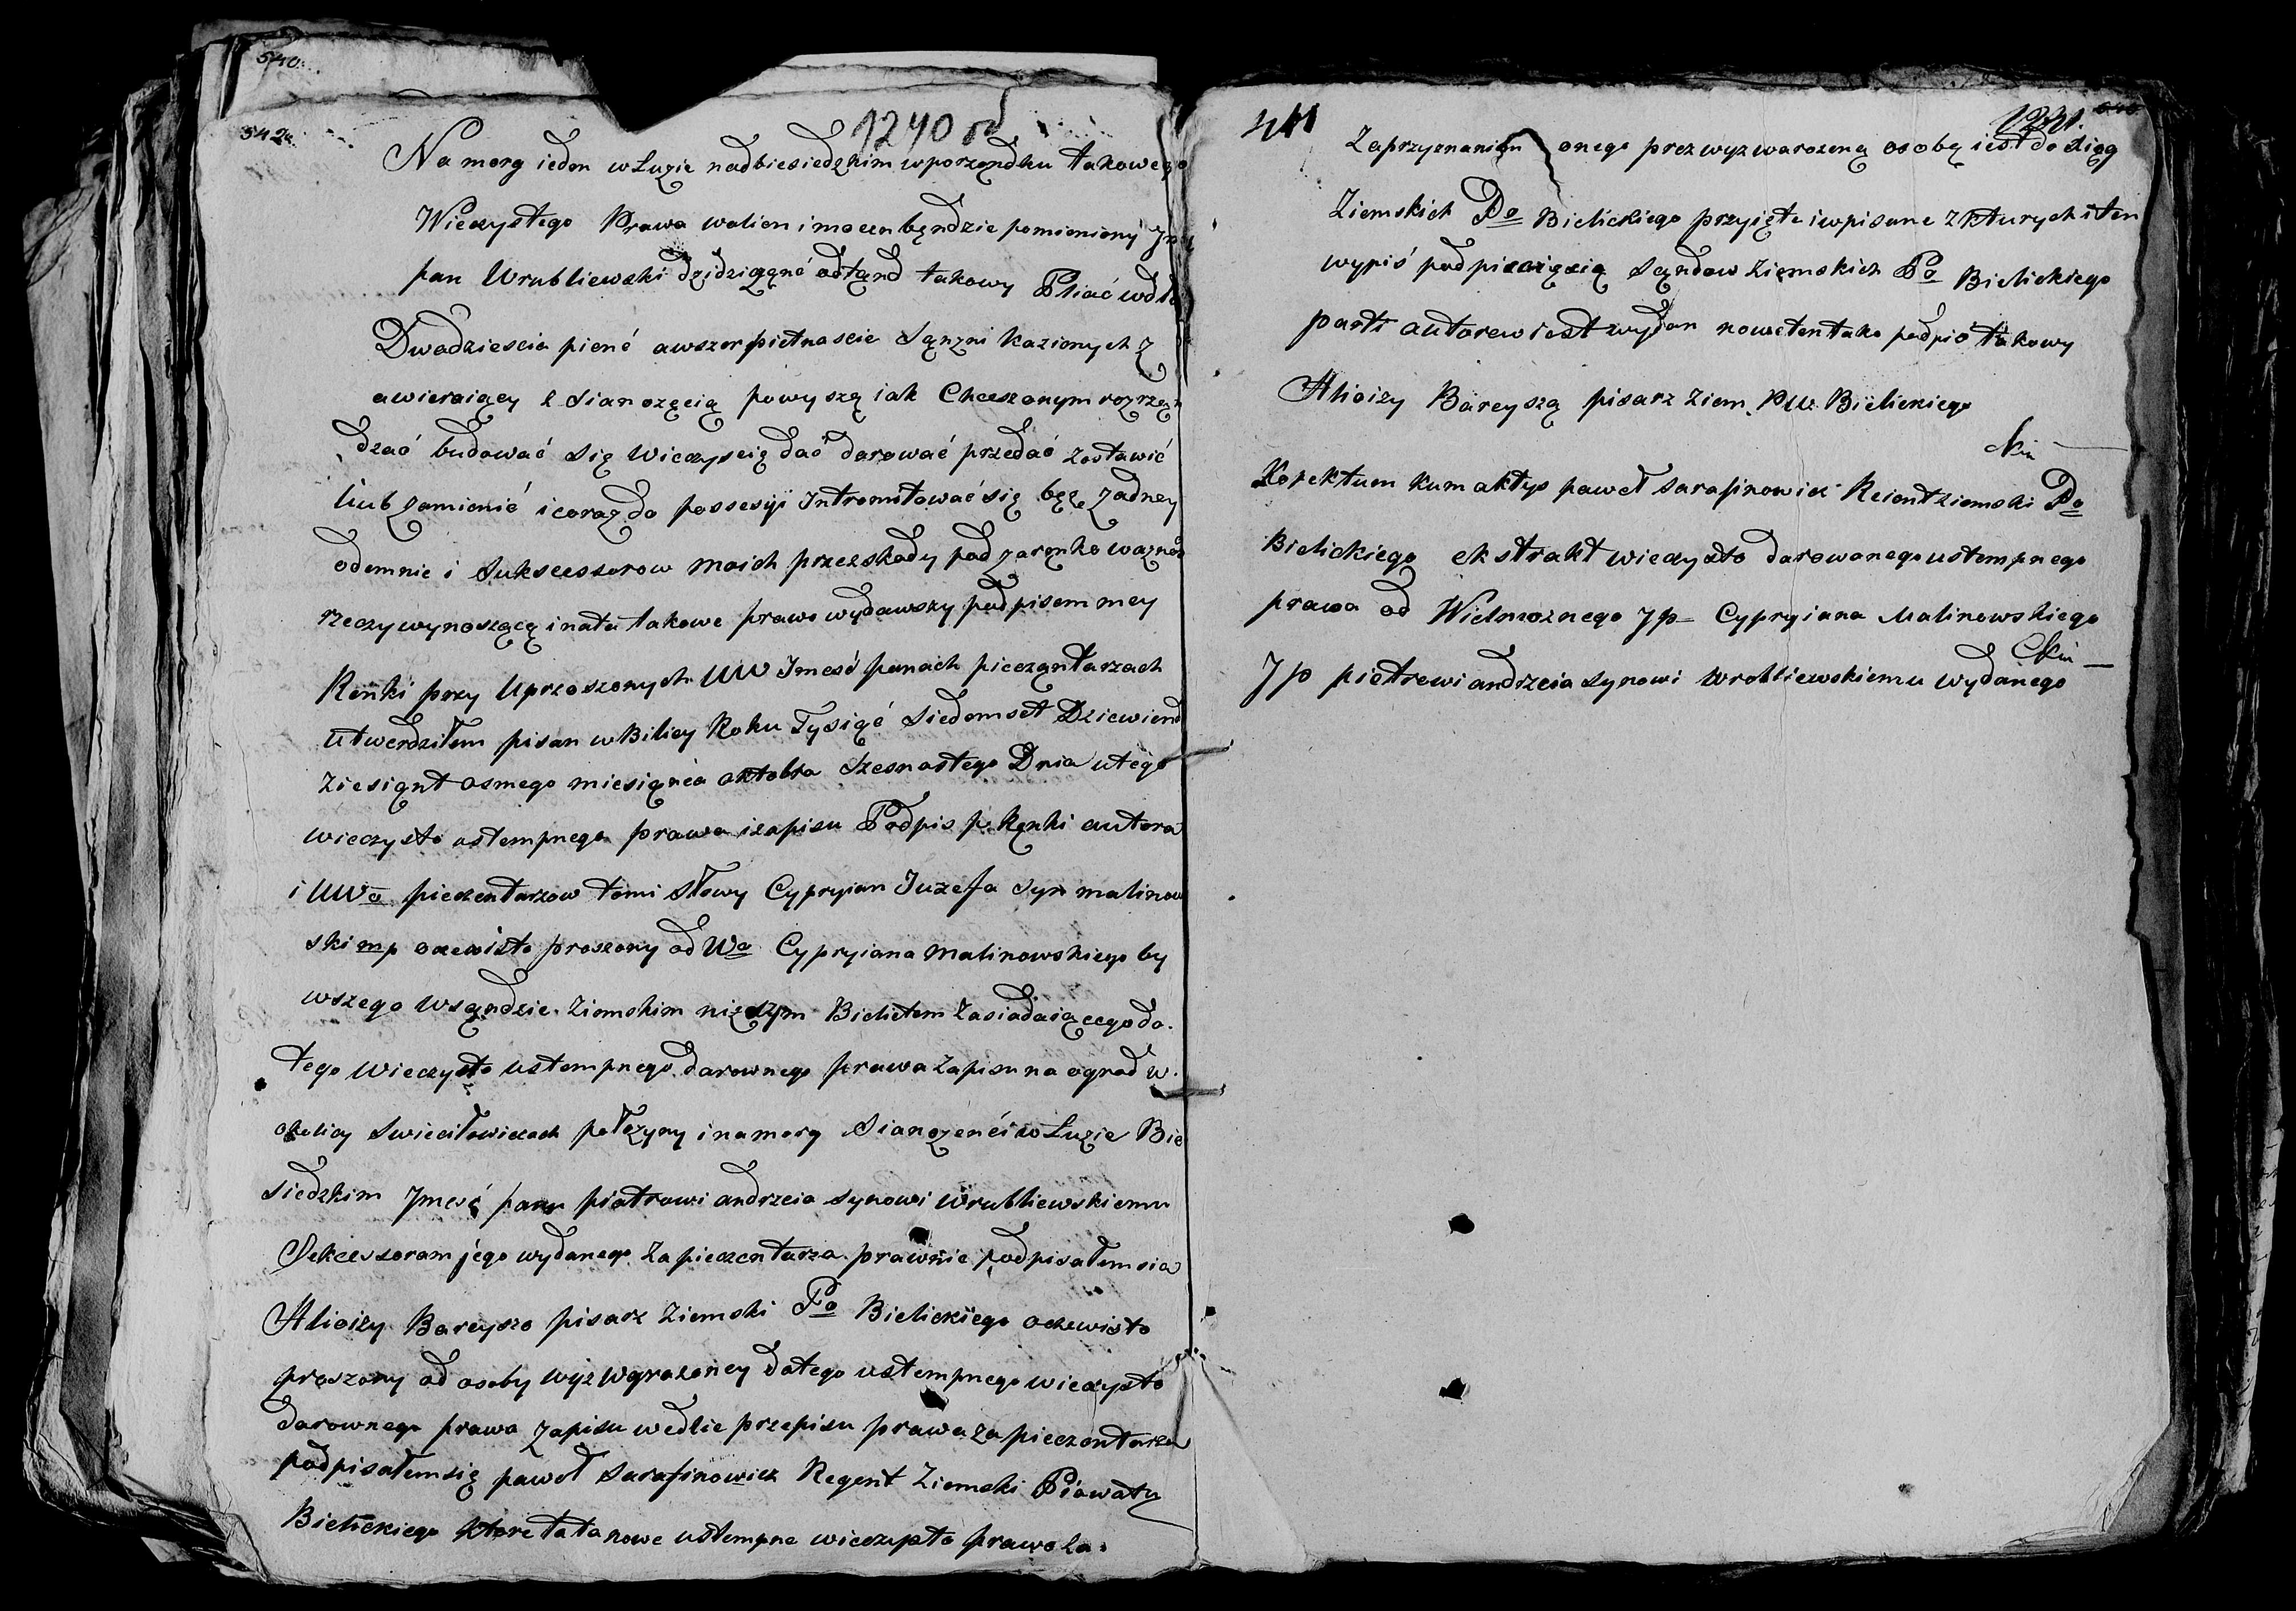 540.
542.
1240 od
Na morg ieden w Łuzie nadbiesiedzkim w porządku takowego
Wieczystego Prawa wolien i mocen będzie pomieniony
pan Wrubliewski dzidziczné odtąnd takowy Pliać wdłu
Dwadziescia pienć a wszerz pietnascie Sązni kazionych Z
awieraiącey z Sianozęcią powyszą iak Chcesz onym rozrząn
dzać budować Się Wieczyscię dać darować przedać zostawić
liub zamienić i coraz do possesyi Intromitować się bęz zadney
odemnie i Suksessorow moich przeszkody pod zarenko wazność
rzeczy wynoszącą i na to takowe prawo wydawszy podpisem mey
Renki przy Uproszonych UW Jmość panach pieczentarzach
Utwerdziłem pisan w Bilicy Roku Tysiąć Siedemset Dziewiend
Ziesiąnt osmego miesiąnca oktobra Szesnastego Dnia u tego
wieczysto ostempnego prawa i zapisu Podpis p. Ręnki autora
i UWo pieczentarzow temi słowy Cypryian Juzefa Syn malinow
ski mp oczewisto proszony od Wo Cypryiana Malinowskiego by
wszego w sąndzie Ziemskim nizszym Bielietem Zasiadaiącego do
tego Wieczysto ustempnego darownego prawa Zapisu na ogrod w
okolicy Swieciłowiczach połzyny i na morg Sianozenći w Łuzie Bie
siedzkim Jmość panu piotrowi andrzeia synowi Wrubliewskiemu
Sekcessoram jego wydanego Za pieczentarza prawnie podpisałem sia
Alioizy Bareysza pisarz Ziemski Po Bielickiego oczewisto
proszony od osoby wyz Wyrazoney do tego ustempnego wieczysto
darownego prawa zapisu wedlie przepisu prawa za pieczentarza
podpisałem się paweł Sarafinowicz Regent Ziemski Piowatu
Bielickiego Ktore to tanowe ustempne wieczysto prawo za
541
1241.
Zaprzyznaniem onego prez wyz warozeną osobę iest do Xiąg
Ziemskich Po Bielickiego przyięte i wpisane z kturych i ten
wypiś pod pieczięcią Sąndow Ziemskich Po Bielickiego
parti autorew iest wydan nowe ten tako podpis takowy
Alioizy Bareyszą pisarz Ziem. Pw. Bielickiego
Korektum kum aktys paweł Sarafinowicz Reient ziemski Po
Bielickiego ekstrakt wieczysto darowanego ustempnego
prawa od Wielmoznego Jp Cypryiana Malinowskiego
Jp piotrewi andrzeia synowi wrobliewskiemu wydanego